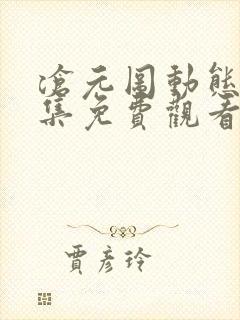 滄元圖動態
集免費觀看
賈彥玲